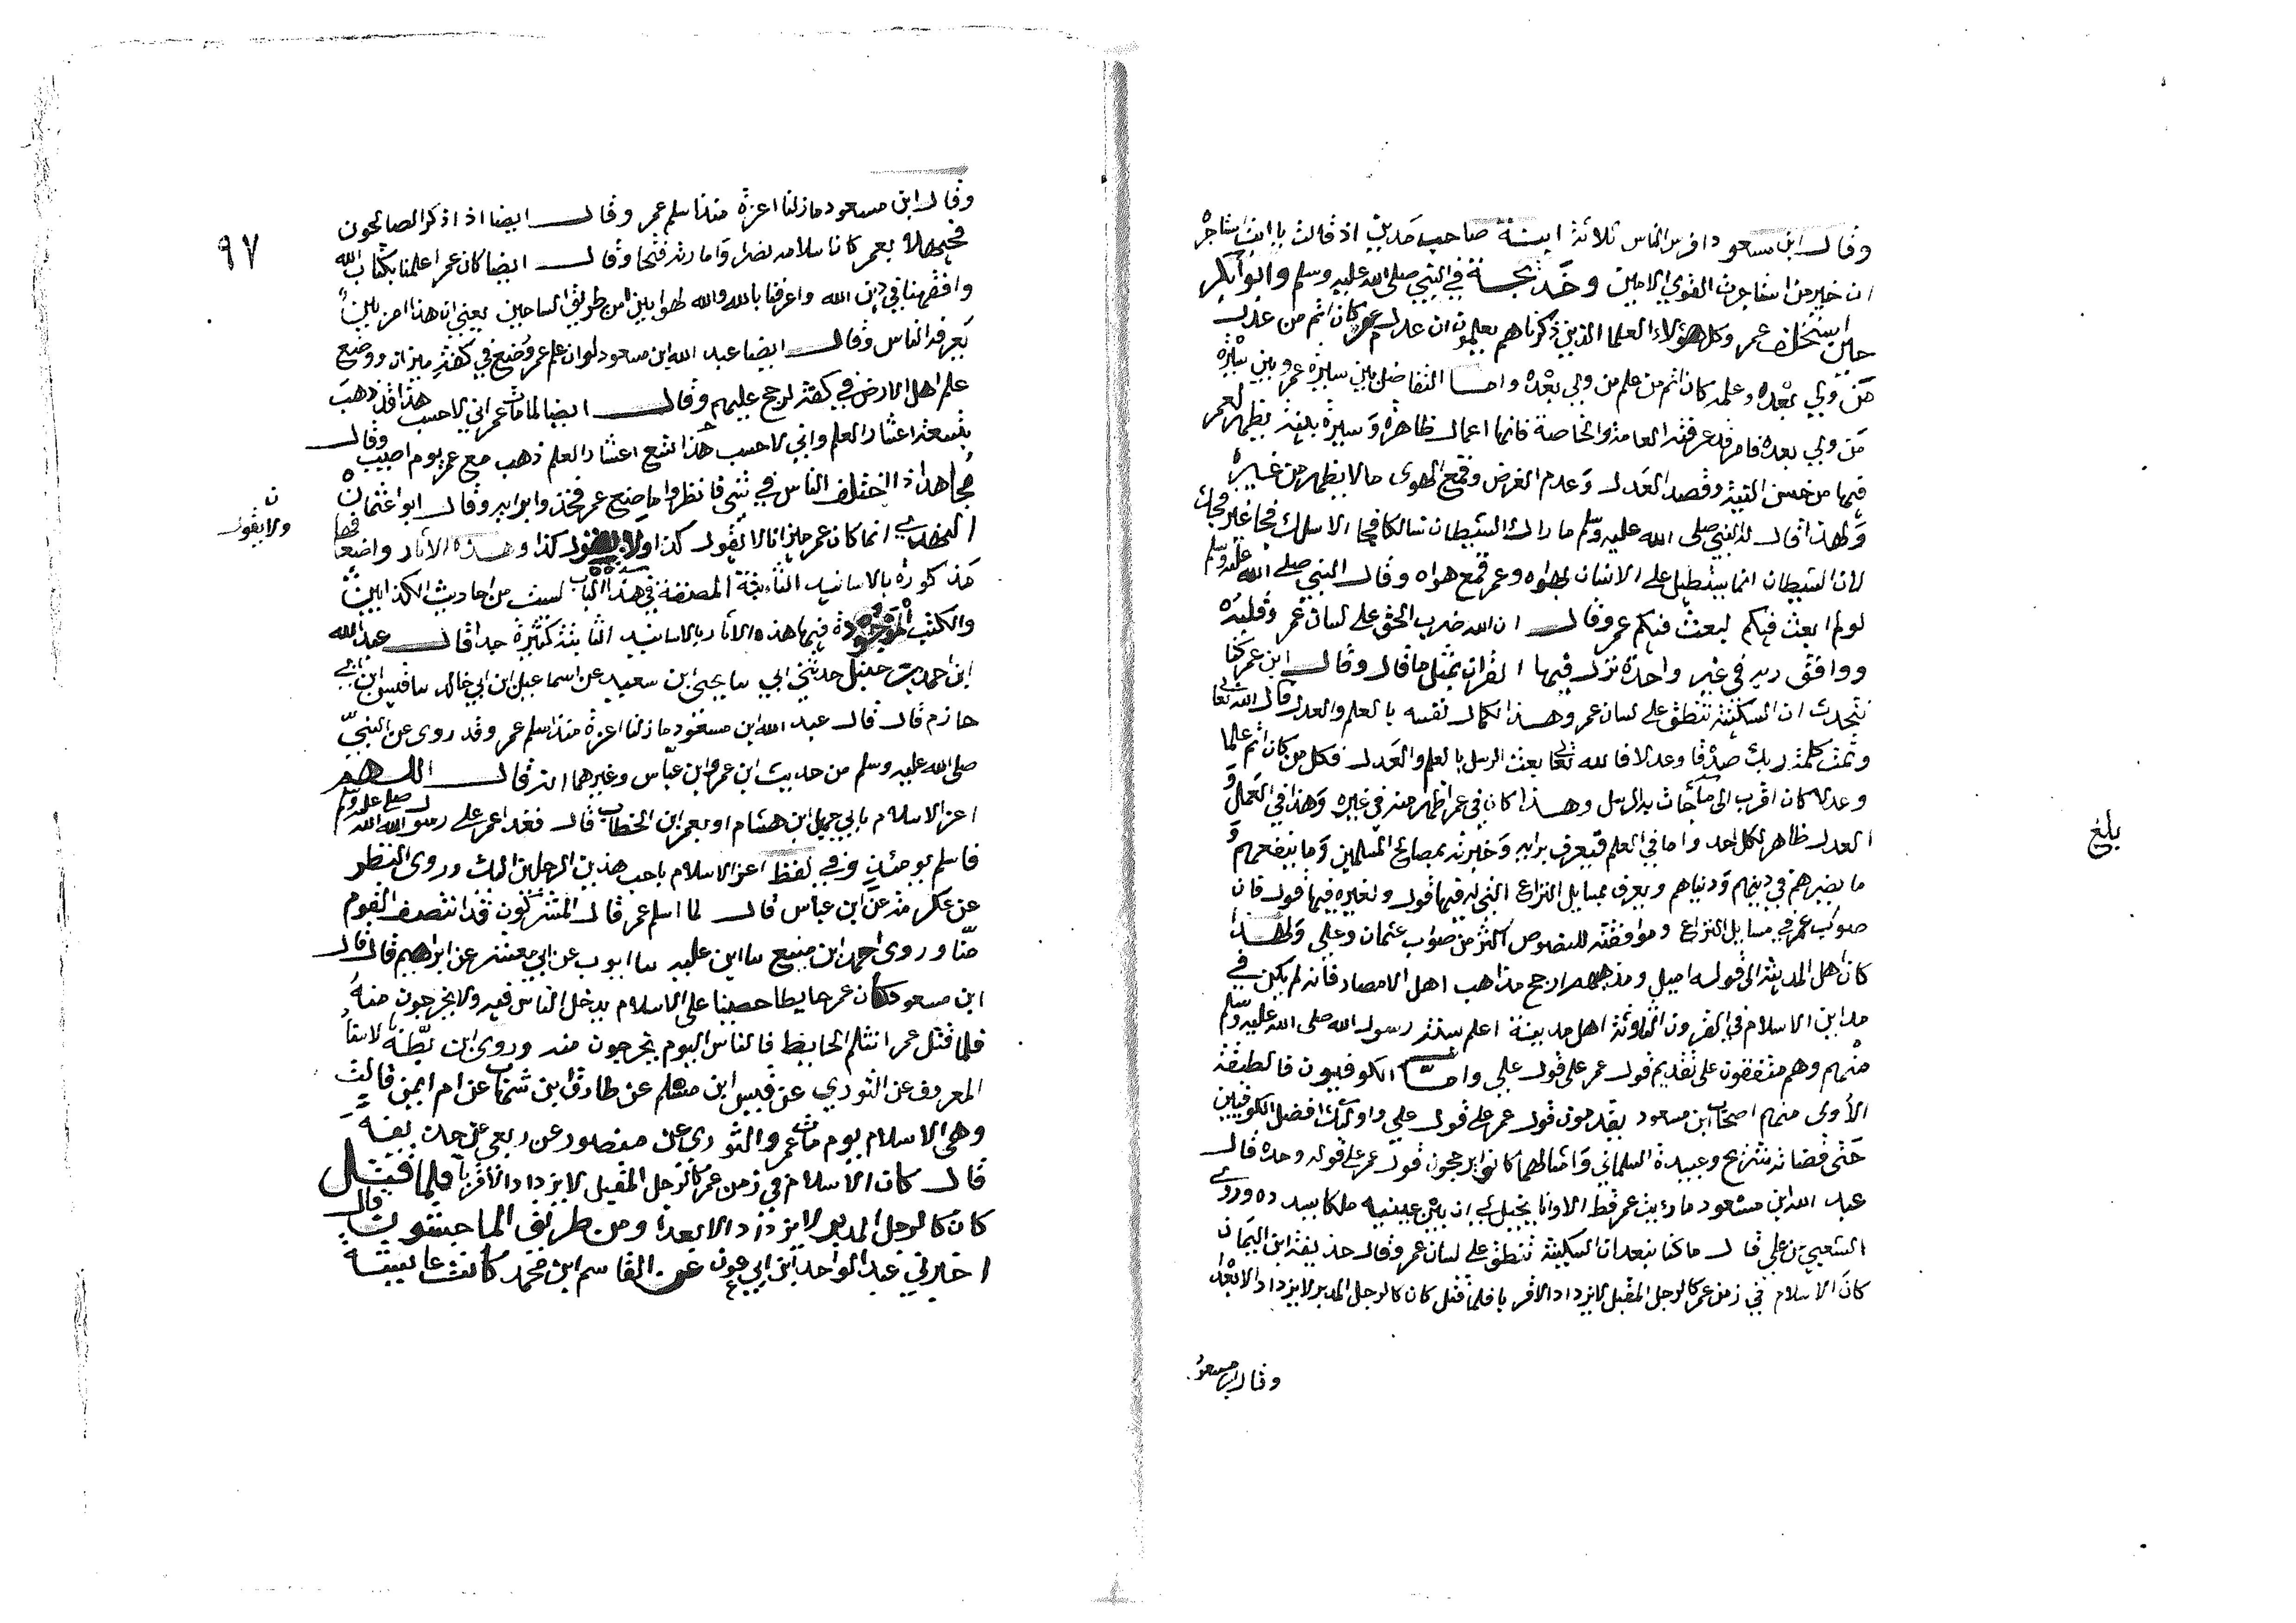 وقال ابن مسعود افرس الناس ثلاثة ابنة صاحب مدين اذ قالت يا ابت استاجره
ان خير من استاجرت القوي الامين وخديجة في النبي صلى الله عليه وسلم وابو بكر
حين استخلف عمر وكل هؤلاء العلما الذين ذكرناهم يعلمون ان عدل عمر كان اتم من عدل
من ولي بعده وعلمه كان اتم من علم من ولي بعده واما التفاضل بين سيرة عمر وبين سيرة
من ولي بعده فامر قد عرفته العامة والخاصة فانها اعمال ظاهرة وسيرة بينة يظهر لعمر
فيها من حسن النية وقصد العدل وعدم الغرض وقمع الهوى ما لا يظهر من غيره
ولهذا قال له النبي صلى الله عليه وسلم ما راك الشيطان سالكا فجا الا سلك فجا غير فجك
لان الشيطان انما يستطيل على الانسان بهواه وعمر قمع هواه وقال النبي صلى الله عليه وسلم
لو لم ابعث فيكم لبعث فيكم عمر وقال ان الله ضرب الحق على لسان عمر وقلبه
ووافق ربه في غير واحدة نزل فيها القران بمثل ما قال وقال ابن عمر كنا
نتحدث ان السكينة تنطق على لسان عمر وهذا لكمال نفسه بالعلم والعدل قال الله تعالى
وتمت كلمة ربك صدقا وعدلا فالله تعالى بعث الرسل بالعلم والعدل فكل من كان اتم علما
وعدلا كان اقرب الى ما جات به الرسل وهذا كان في عمر اظهر منه في غيره وهذا في العمل و
العدل ظاهر لكل احد واما في العلم فيعرف برايه وخبرته بمصالح المسلمين وما ينفعهم و
ما يضرهم في دينهم ودنياهم ويعرف بمسايل النزاع التي له فيها قول ولغيره فيها قول فان
صواب عمر في مسايل النزاع وموافقته للنصوص اكثر من صواب عثمان وعلي ولهذا
كان اهل المدينة الى قوله اميل ومذهبهم ارجح مذاهب اهل الامصار فانه لم يكن في
مداين الاسلام في القرون الثلاثة اهل مدينة اعلم بسنة رسول الله صلى الله عليه وسلم
منهم وهم متفقون على تقديم قول عمر على قول علي واما الكوفيون فالطبقة
الأولى منهم اصحاب ابن مسعود يقدمون قول عمر على قول علي واولئك افضل الكوفيين
حتى قضاته شريح وعبيدة السلماني وامثالهما كانوا يرجحون قول عمر على قوله وحده قال
عبد الله ابن مسعود ما رايت عمر قط الا وانا يخيل لي ان بين عينيه ملكا يسدده وروى
الشعبي عن علي قال ما كنا نبعد ان السكينة تنطق على لسان عمر وقال حذيفة ابن اليمان
كان الاسلام في زمن عمر كالرجل المقبل لا يزداد الا قربا فلما قتل كان كالرجل المدبر لا يزداد الا بعدا
وقال ابن مسعود
بلغ
وقال ابن مسعود ما زلنا اعزة منذ اسلم عمر وقال ايضا اذا ذكر الصالحون
فحيهلا بعمر كان اسلامه نصرا وامارته فتحا وقال ايضا كان عمر اعلمنا بكتاب الله
وافقهنا في دين الله واعرفنا بالله والله لهو ابين من طريق الساحين يعني ان هذا امر بين
يعرفه الناس وقال ايضا عبد الله ابن مسعود لو ان علم عمر وضع في كفة ميزان ووضع
علم اهل الارض في كفة لرجح عليهم وقال ايضا لما مات عمر اني لاحسب هذا قد ذهب
بتسعة اعشار العلم واني لاحسب هذا تسع اعشار العلم ذهب مع عمر يوم اصيب وقال
مجاهد اذا اختلف الناس في شي فانظروا ما صنع عمر فخذوا برايه وقال ابو عثمان
النهدي انما كان عمر ميزانا لا يقول كذا ولا يقول كذا وهذه الاثار واضعافها
مذكورة بالاسانيد الثابتة المصنفة في هذا الباب ليست من احاديث الكذابين
والكتب الموجودة فيها هذه الاثار بالاسانيد الثابتة كثيرة جدا قال عبد الله
ابن احمد بن حنبل حدثني ابي سا يحيى ابن سعيد عن اسماعيل ابن ابي خالد سا قيس ابن ابي
حازم قال قال عبد الله ابن مسعود ما زلنا اعزة منذ اسلم عمر وقد روى عن النبي
صلى الله عليه وسلم من حديث ابن عمر وابن عباس وغيرهما انه قال اللهم
اعز الاسلام بابي جهل ابن هشام او بعمر ابن الخطاب قال فغدا عمر على رسول الله صلى الله عليه وسلم
فاسلم يومئذ وفي لفظ اعز الاسلام باحب هذين الرجلين اليك وروى النضر
عن عكرمة عن ابن عباس قال لما اسلم عمر قال المشركون قد انتصف القوم
منا وروى احمد ابن منيع سا ابن علية سا ايوب عن ابي معشر عن ابراهيم قال قال
ابن مسعود كان عمر حايطا حصينا على الاسلام يدخل الناس فيه ولا يخرجون منه
فلما قتل عمر انثلم الحايط فالناس اليوم يخرجون منه وروى ابن بطة بالاسناد
المعروف عن الثوري عن قيس ابن مسلم عن طارق ابن شهاب عن ام ايمن قالت
وهى الاسلام يوم مات عمر والثوري عن منصور عن ربعي عن حذيفة
قال كان الاسلام في زمن عمر كالرجل المقبل لا يزداد الا قربا فلما قتل
كان كالرجل المدبر لا يزداد الا بعدا ومن طريق الماجشون قال
اخبرني عبد الواحد ابن ابي عون عن القاسم ابن محمد كانت عايشة
٩٧
ن
ولا يقول